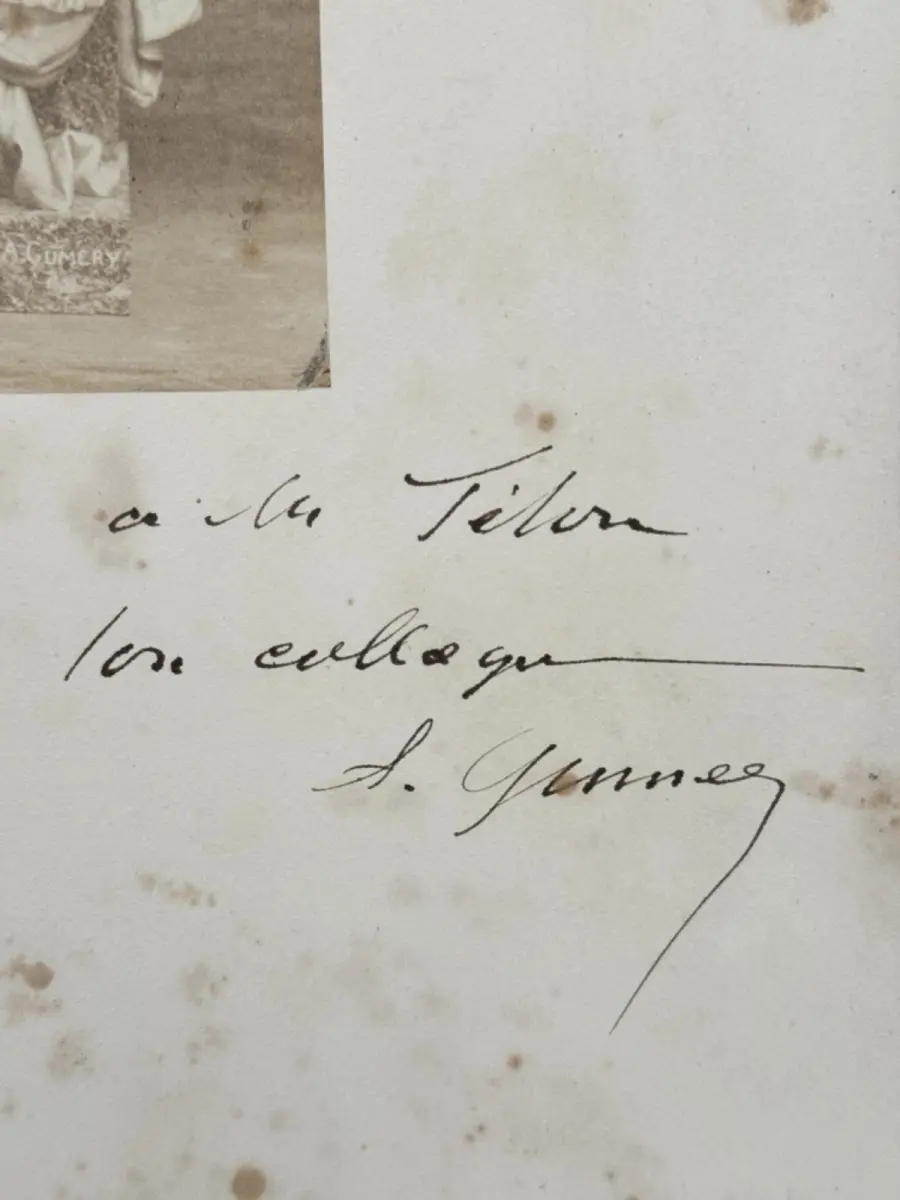 A GUMERY
a Mr Tilon
son collegue
A. Gumery